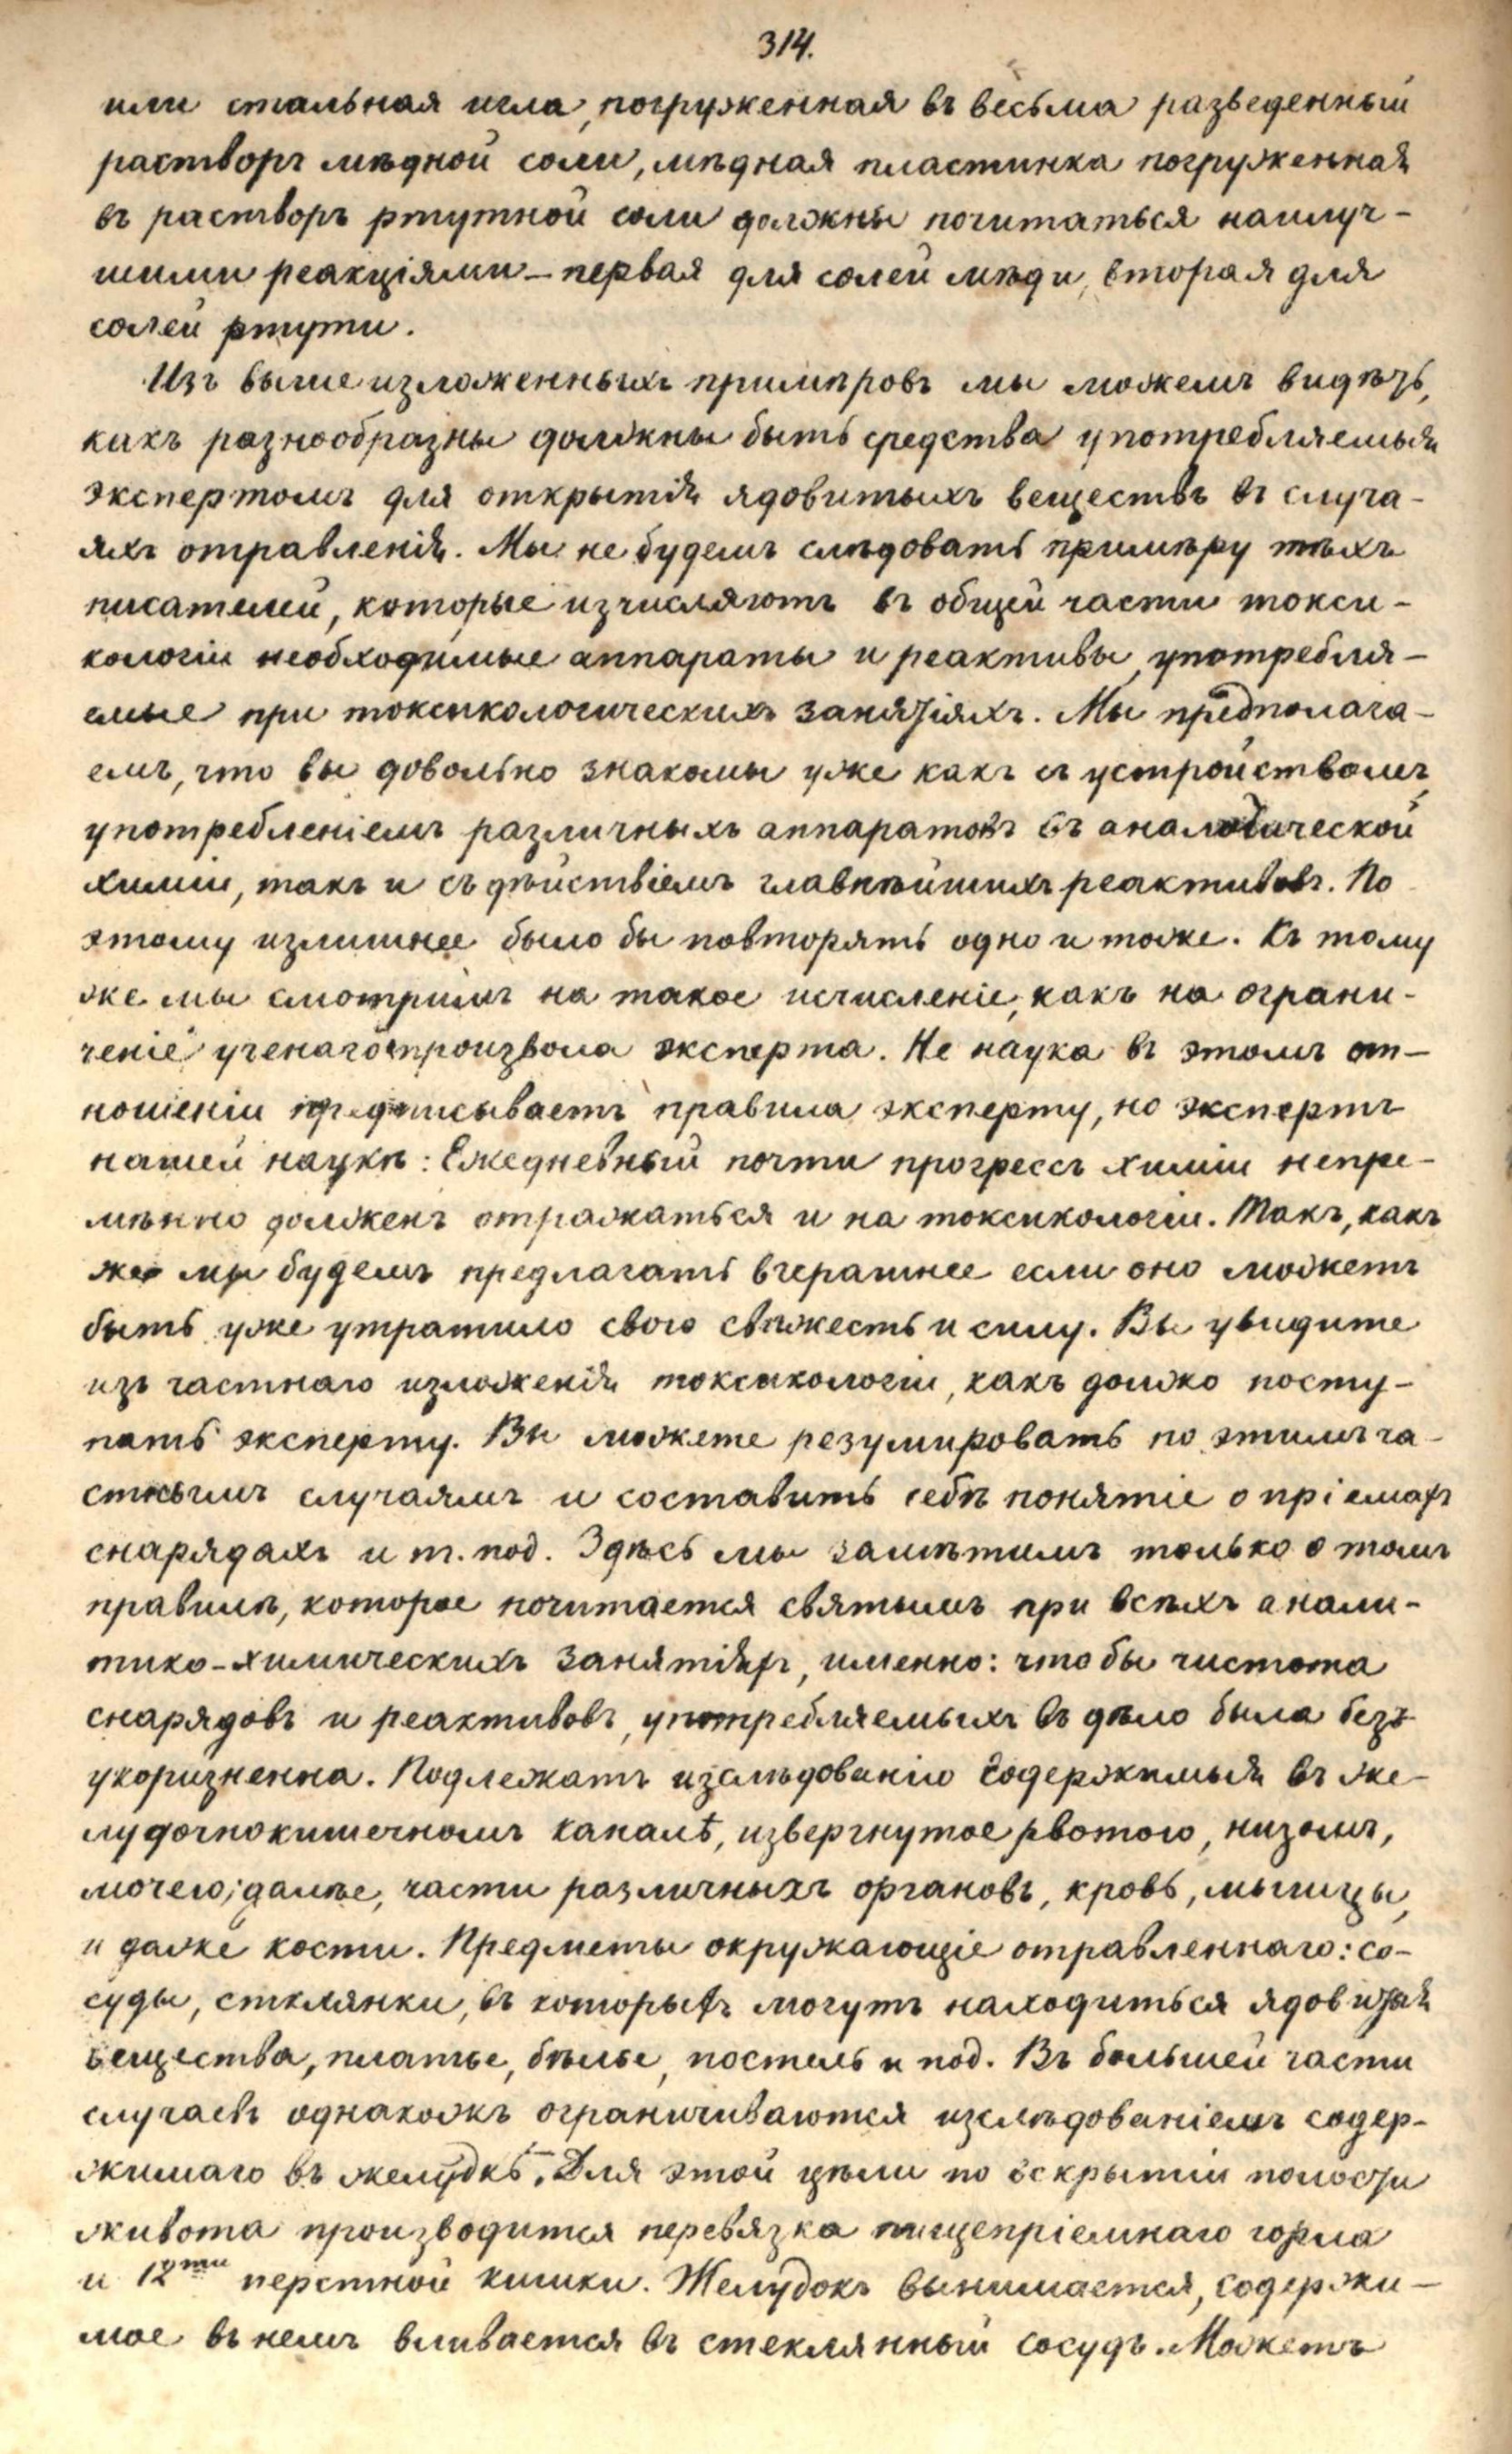 314.
или стальная игла, погруженная въ весьма разведенный
растворъ мѣдной соли, мѣдная пластинка погруженная
въ растворъ ртутной соли должны почитаться наилуч-
шими реакціями – первая для солей мѣди, вторая для
солей ртути.
Изъ выше изложенныхъ примѣровъ мы можемъ видѣть,
какъ разнообразны должны быть средства употребляемыя
экспертомъ для открытія ядовитыхъ веществъ въ случа-
яхъ отравленія. Мы не будемъ слѣдовать примѣру тѣхъ
писателей, которые изчисляютъ въ общей части токси-
кологіи необходимые аппараты и реактивы, употребля-
емые при токсикологическихъ занятіяхъ. Мы предполага-
емъ, что вы довольно знакомы уже какъ съ устройствомъ,
употребленіемъ различныхъ аппаратовъ въ аналотической
химіи, такъ и съ дѣйствіемъ главнѣйшихъ реактивовъ. По
этому излишнее было бы повторять одно и тоже. Къ тому
же мы смотримъ на такое исчисленіе, какъ на ограни-
ченіе ученаго произвола эксперта. Не наука въ этомъ от-
ношеніи предписываетъ правила эксперту, но экспертъ
нашей наукѣ: Ежедневный почти прогрессъ химіи непре-
мѣнно долженъ отражаться и на токсикологіи. Такъ, какъ
же мы будемъ предлагать вчерашнее если оно можетъ
быть уже утратило свою свѣжесть и силу. Вы увидите
изъ частнаго изложенія токсикологіи, какъ должо посту-
пать эксперту. Вы можете резумировать по этимъ ча-
стнымъ случаямъ и составить себѣ понятіе о пріемахъ
снарядахъ и т. под. Здѣсь мы замѣтимъ только о томъ
правилѣ, которое почитается святымъ при всѣхъ анали-
тико-химическихъ занятіяхъ, именно: что бы чистота
снарядовъ и реактивовъ, употребляемыхъ въ дѣло была безъ
укоризненна. Подлежатъ изслѣдованію содержимыя въ же-
лудочнокишечномъ каналѣ, извергнутое рвотою, низомъ,
мочею; далѣе, части различныхъ органовъ, кровь, мышцы,
и даже кости. Предметы окружающіе отравленнаго: со-
суды, стклянки, въ которыхъ могутъ находиться ядовитыя
вещества, платье, бѣлье, постель и под. Въ большей части
случаевъ однакожъ ограничиваются изслѣдованіемъ содер-
жимаго въ желудкѣ. Для этой цѣли по вскрытіи полости
живота производится перевязка пищепріемнаго горла
и 12ти перстной кишки. Желудокъ вынимается, содержи-
мое въ немъ вливается въ стеклянный сосудъ. Можетъ